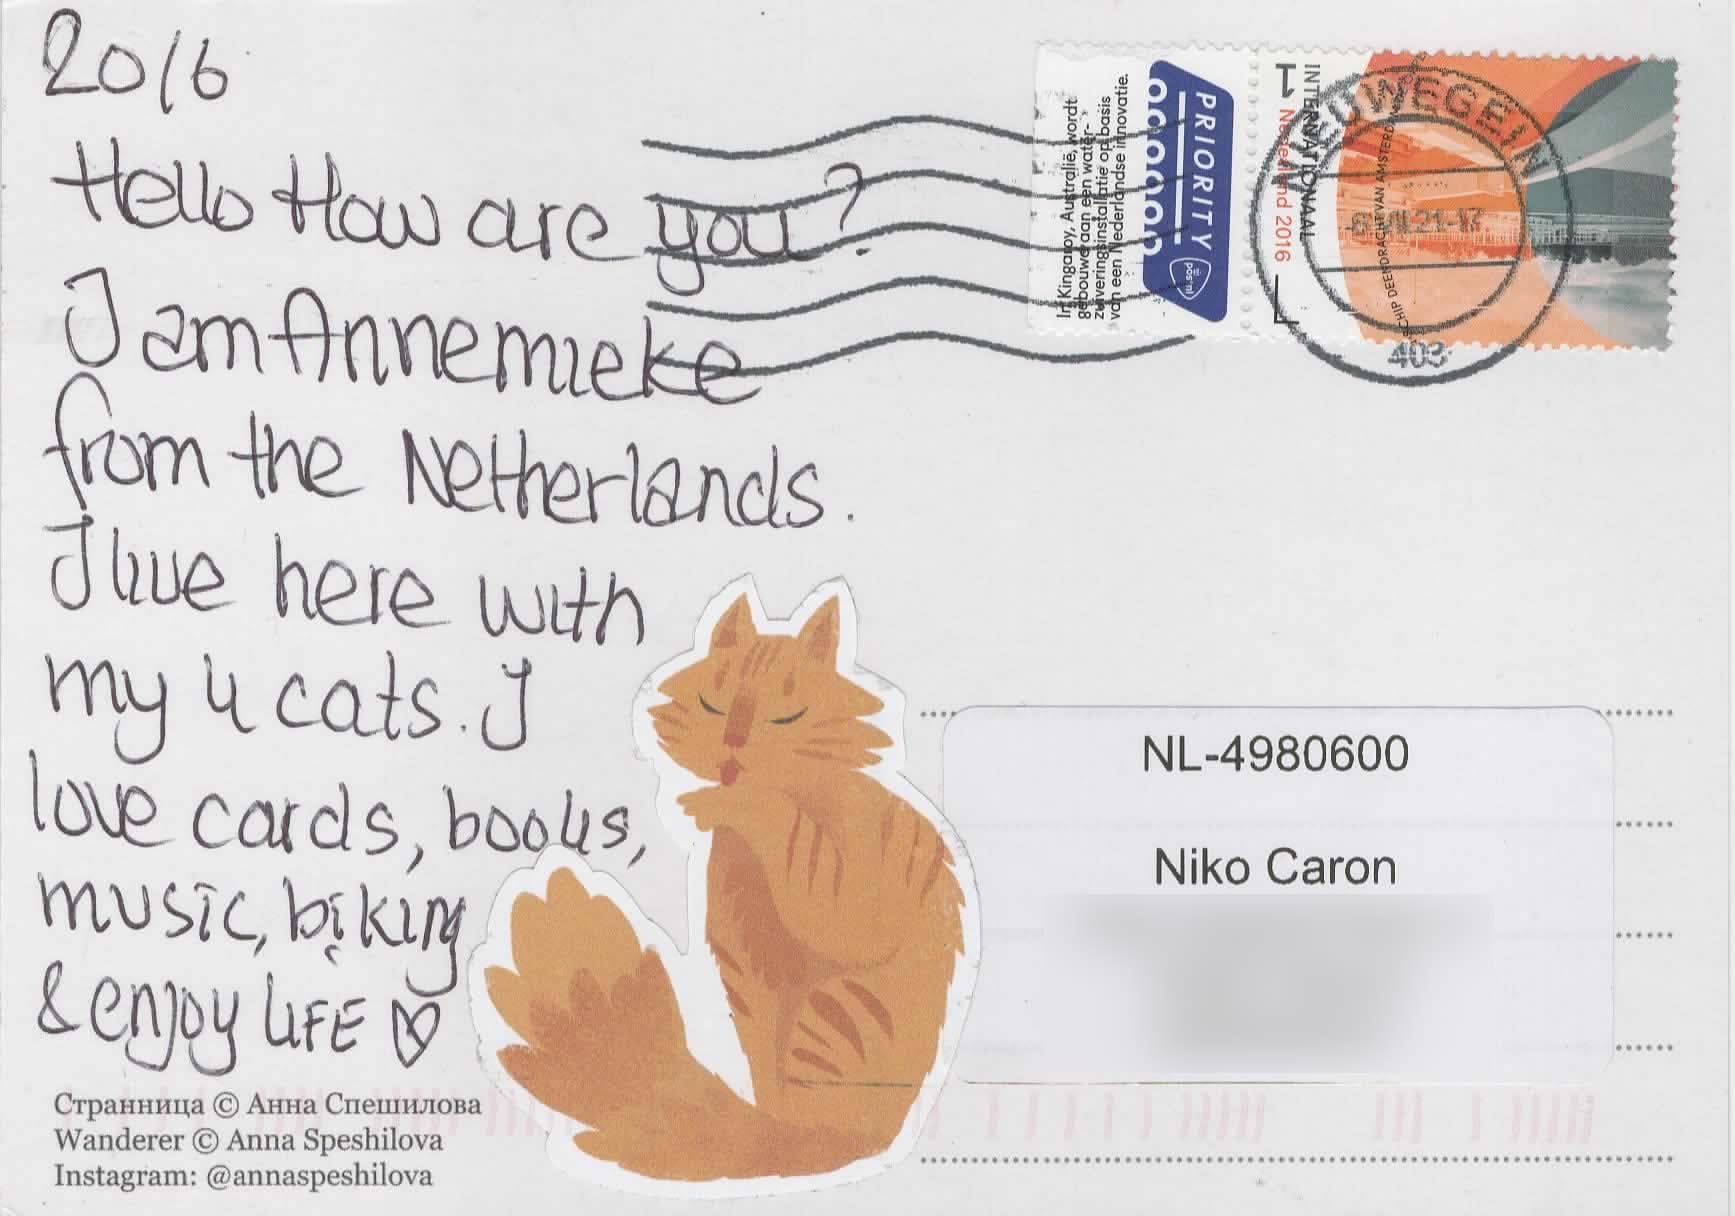 20/6
Hello How are you?
I am Annemieke
from the Netherlands.
I live here with
my 4 cats. I
love cards, books,
music, biking
& enjoy LIFE
Странница © Анна Спешилова
Wanderer © Anna Speshilova
Instagram: @annaspeshilova
In Kingaroy, Australië, wordt
gebouwd aan een water-
zuiveringsinstallatie op basis
van een Nederlandse innovatie.
PRIORITY
postnl
1
INTERNATIONAAL
Nederland 2016
SCHIP DEENDRACHT VAN AMSTERDAM
NIEUWEGEIN
403
NL-4980600
Niko Caron